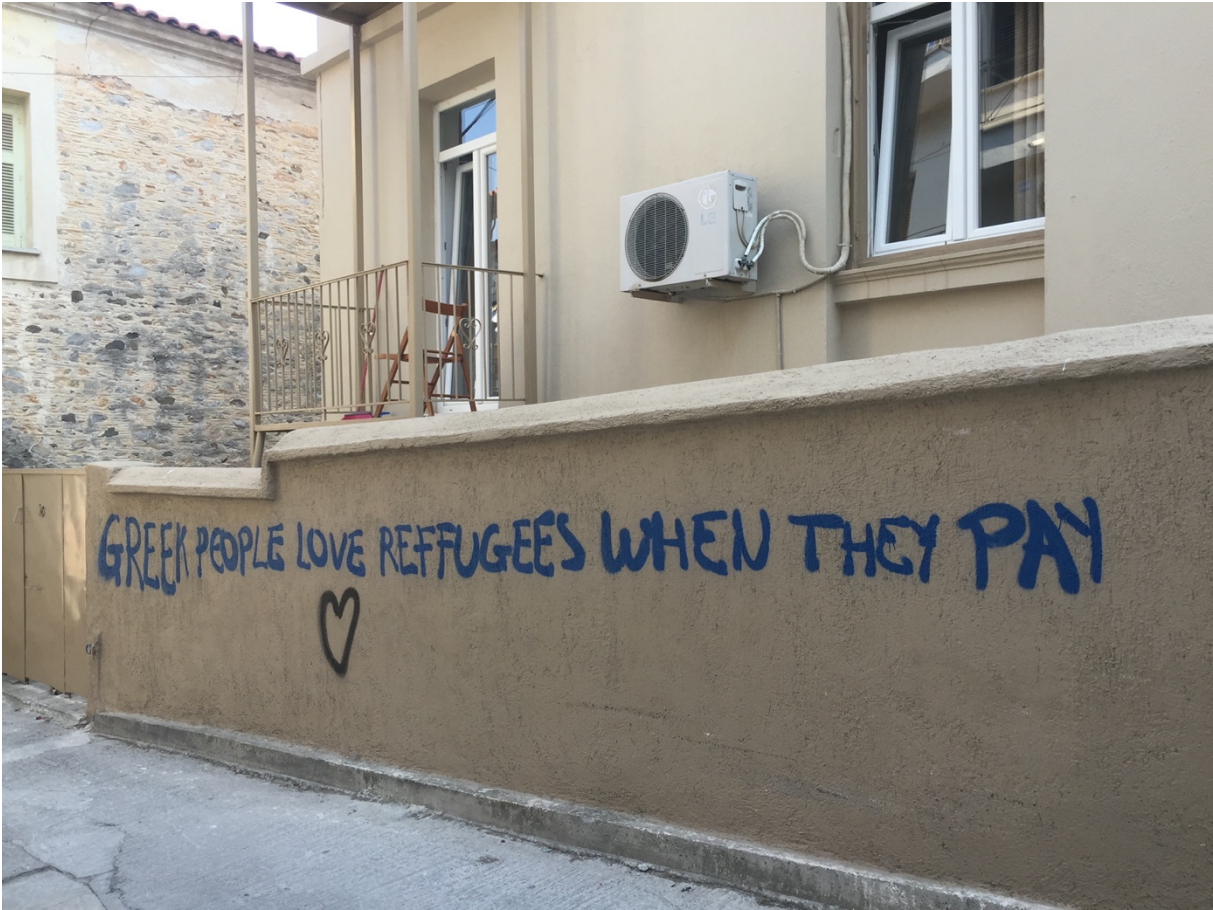 GREEK PEOPLE LOVE REFFUGEES WHEN THEY PAY
LG